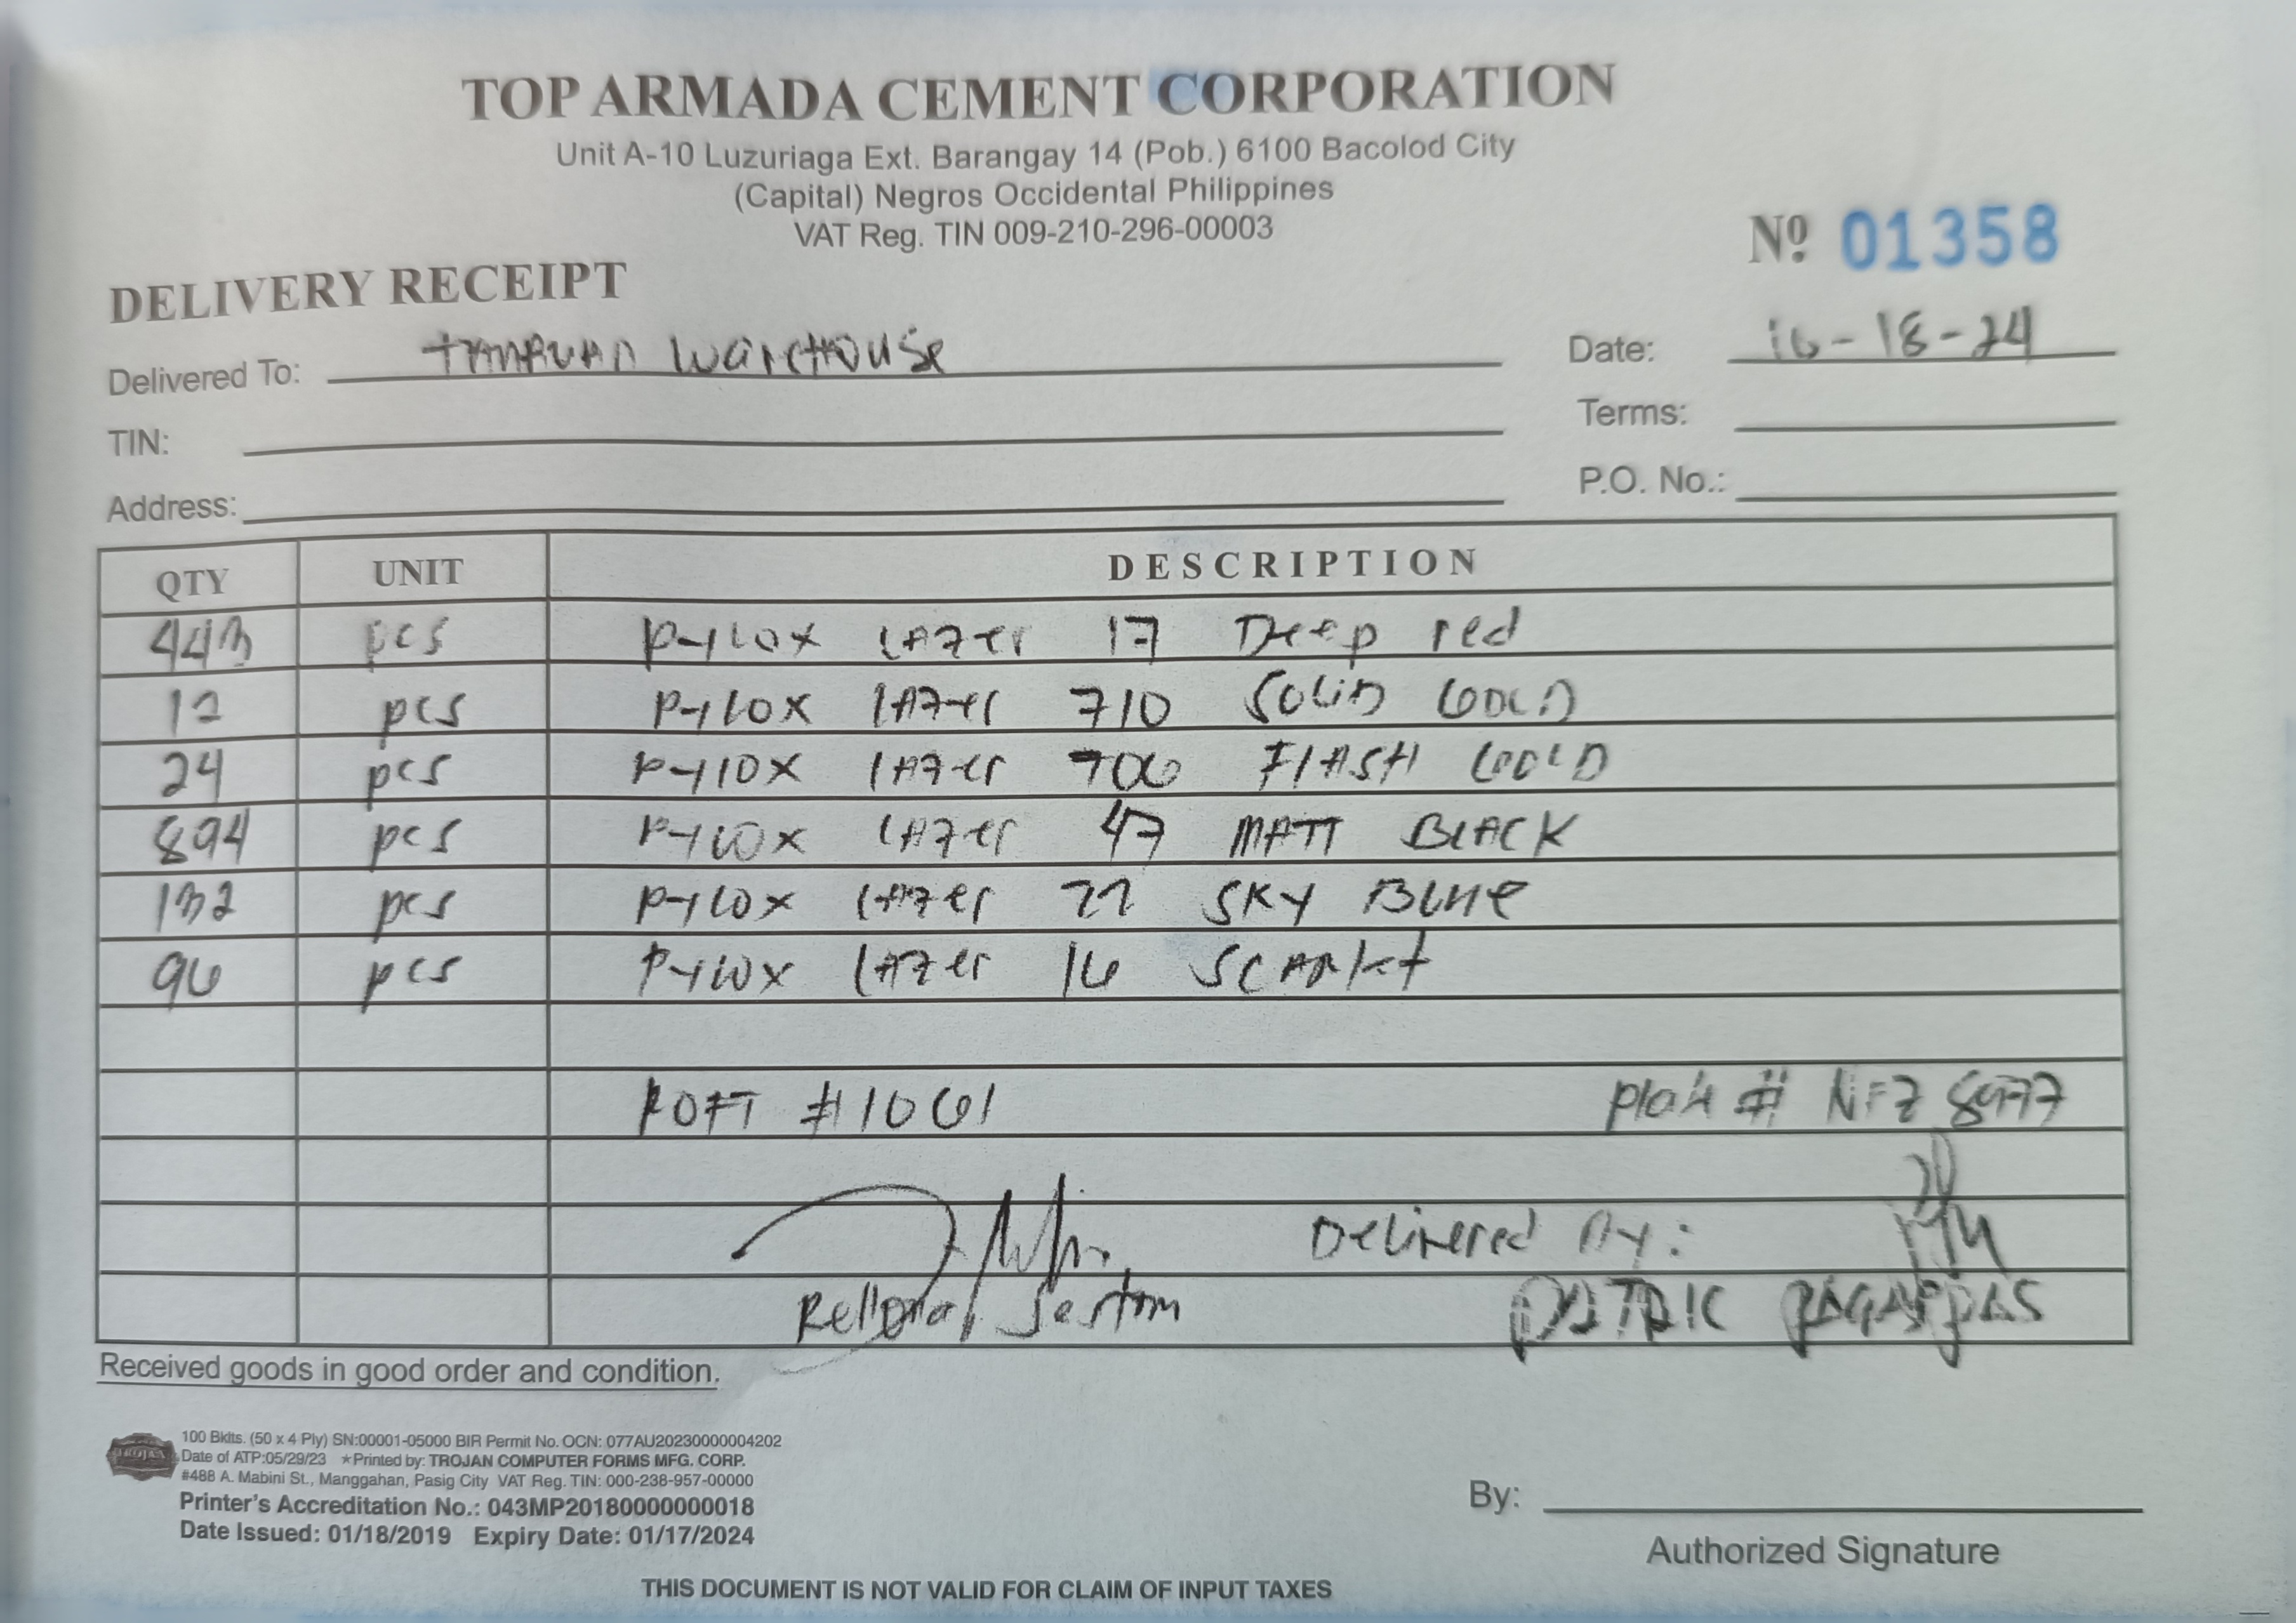 TOP ARMADA CEMENT CORPORATION
Unit A-10 Luzuriaga Ext. Barangay 14 (Pob.) 6100 Bacolod City
(Capital) Negros Occidental Philippines
VAT Reg. TIN 009-210-296-00003
Nº 01358
DELIVERY RECEIPT
Delivered To: Warehouse
Date: 10-18-24
TIN:
Terms:
Address:
P.O. No.:
QTY UNIT DESCRIPTION
443 pcs PYLOX LAZER 17 Deep red
12 pcs PYLOX LAZER 710 SOLID GOLD
24 pcs PYLOX LAZER 706 FLASH GOLD
894 pcs PYLOX LAZER 47 MATT BLACK
132 pcs PYLOX LAZER 22 SKY BLUE
96 pcs PYLOX LAZER 16 SCARLET
#1061 #
Delivered By:
Received goods in good order and condition.
100 Bklts. (50 x 4 Ply) SN:00001-05000 BIR Permit No. OCN: 077AU20230000004202
TROJAN
Date of ATP:05/29/23 ★Printed by: TROJAN COMPUTER FORMS MFG. CORP.
#488 A. Mabini St., Manggahan, Pasig City VAT Reg. TIN: 000-238-957-00000
Printer's Accreditation No.: 043MP20180000000018
Date Issued: 01/18/2019 Expiry Date: 01/17/2024
By:
Authorized Signature
THIS DOCUMENT IS NOT VALID FOR CLAIM OF INPUT TAXES